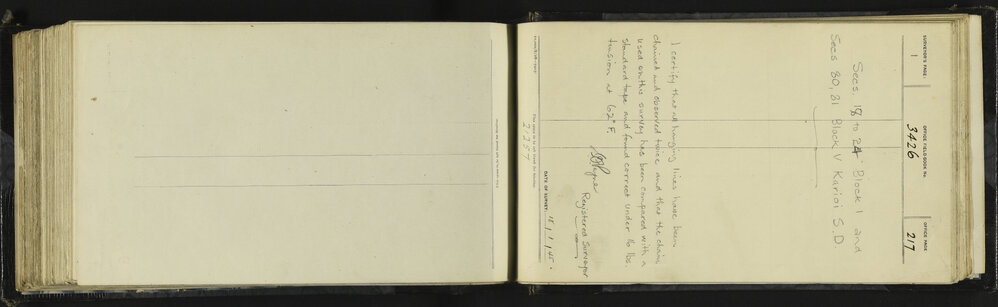 SURVEYOR'S PAGE
1
OFFICE FIELD-BOOK No.
3426
OFFICE PAGE
217
Secs. 18 to 24 Block 1 and
Secs 30, 31 Block V Karioi S.D
I certify that all hanging lines have been
chained and observed twice and that the chain
used on this survey has been compared with a
standard tape and found correct under 16 lbs.
tension at 62° F.
Registered Surveyor
DATE OF SURVEY
21257